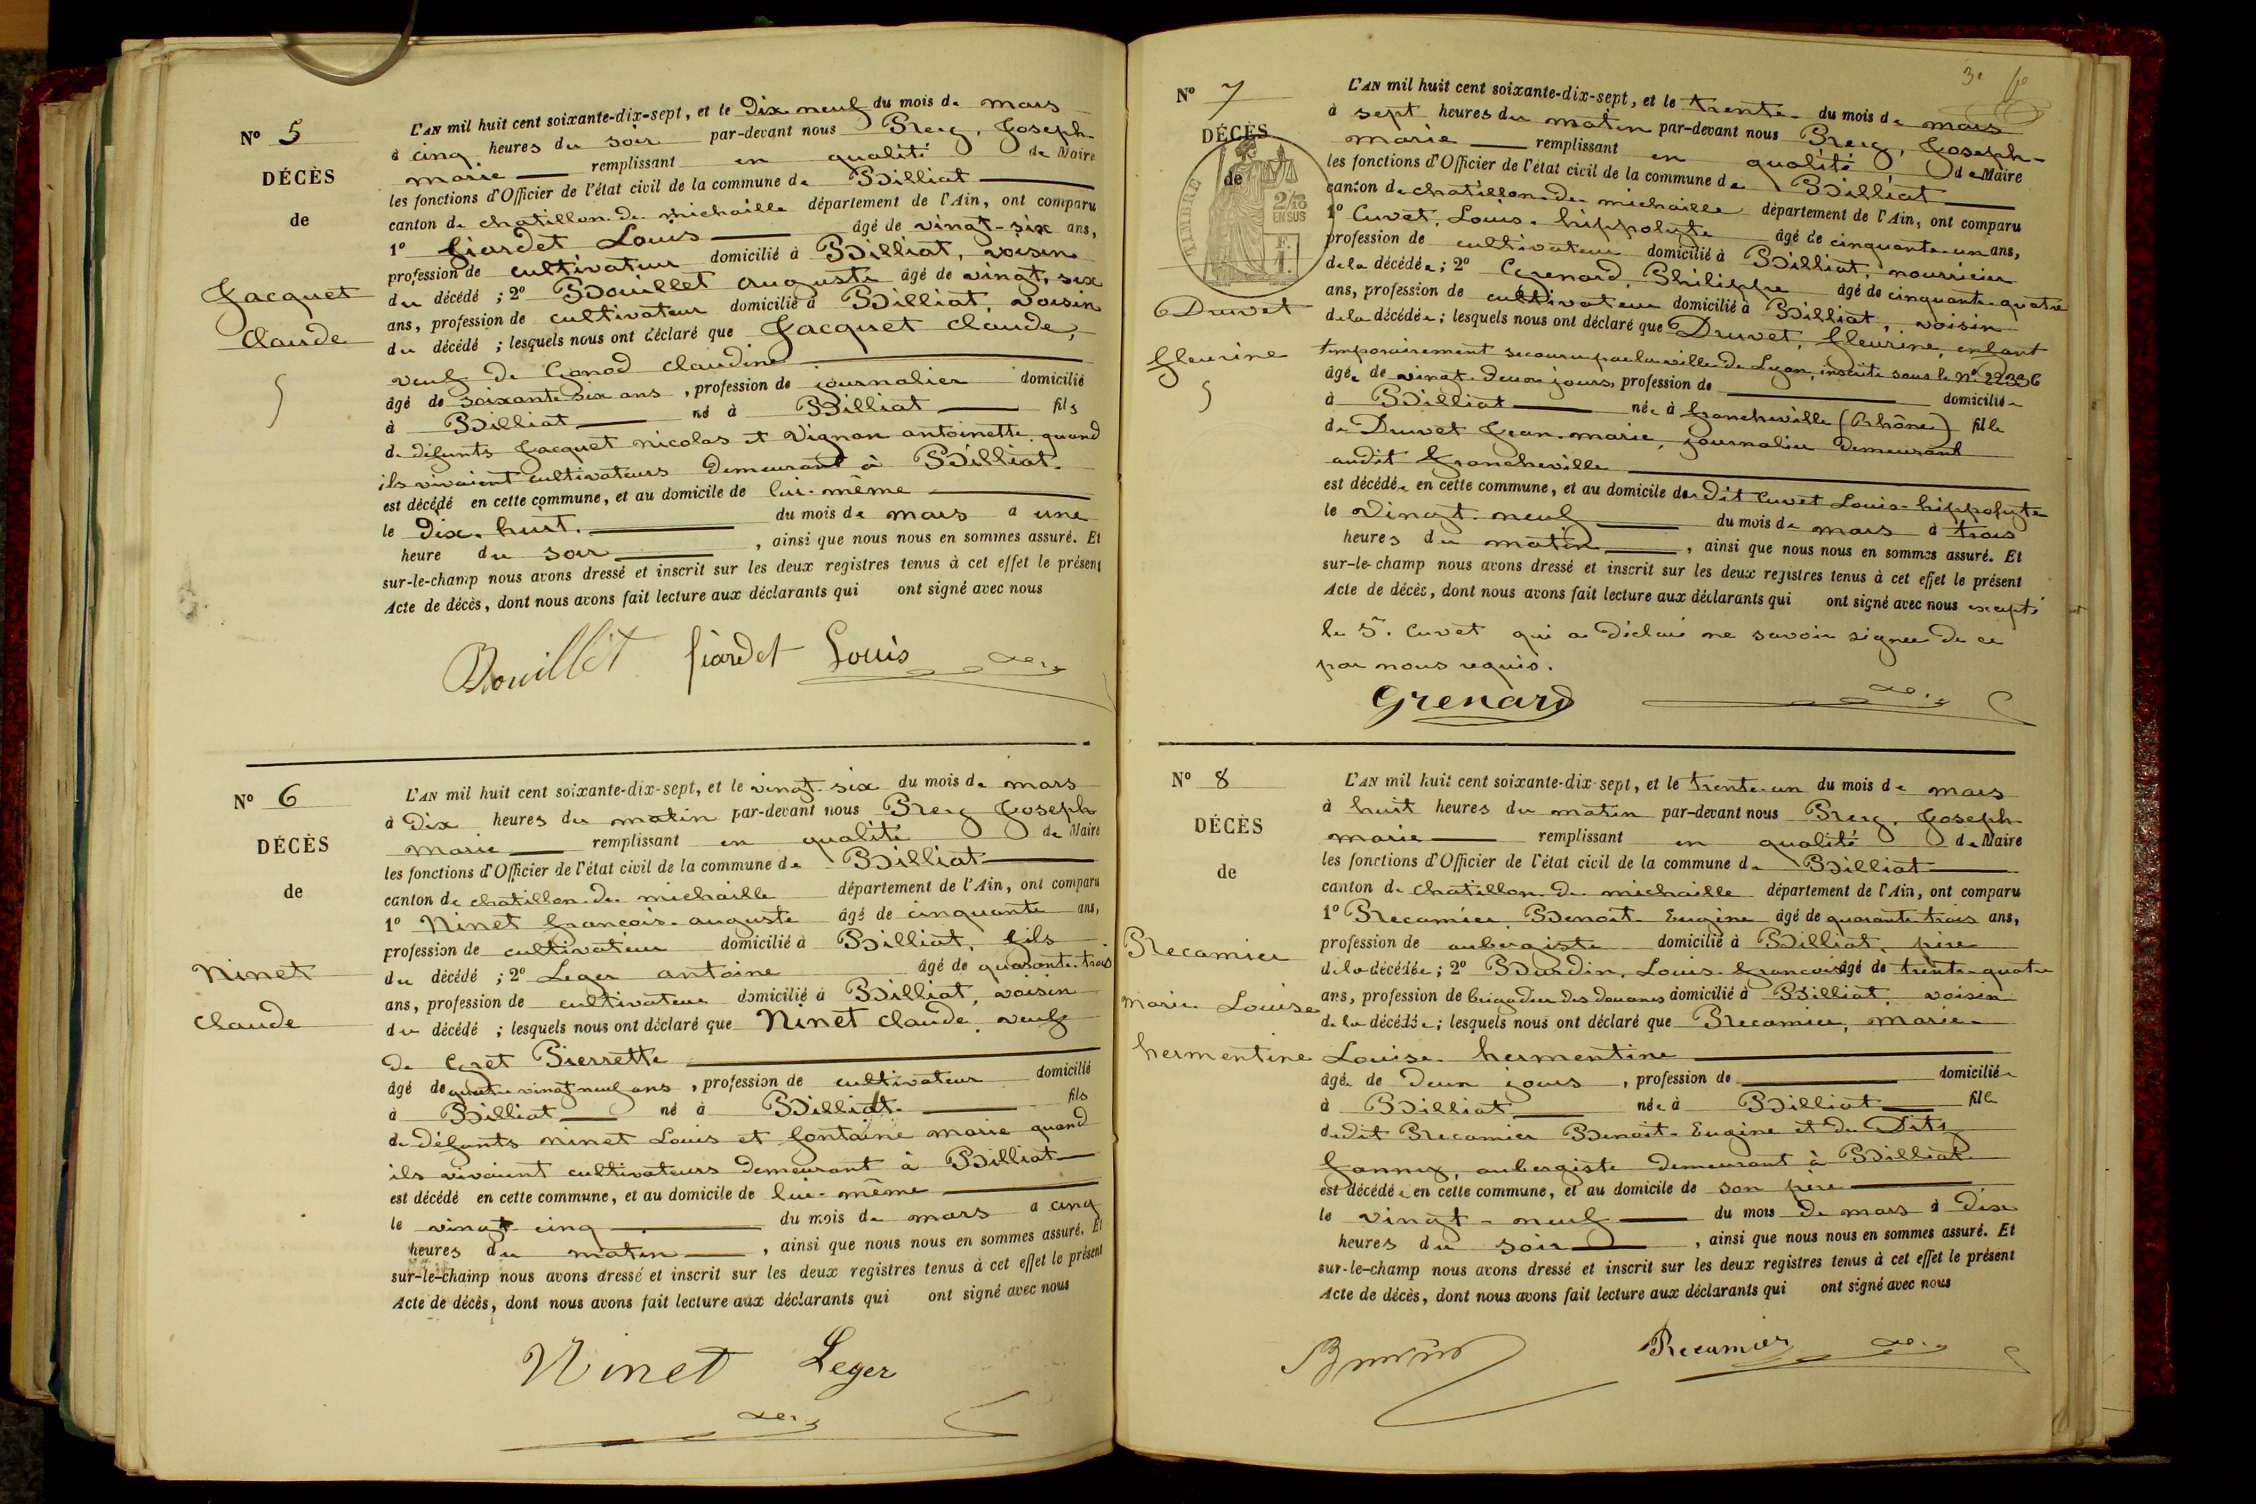 N° 5
DÉCÈS
de
Jacquet
Claude
L'AN mil huit cent soixante-dix-sept, et le Dix neuf du mois de mars
à cinq heures du soir par-devant nous Prery, Joseph-
marie remplissant en qualité de Maire
les fonctions d'Officier de l'état civil de la commune de Billiat
canton de chatillon-de-michaille département de l'Ain, ont comparu
1° fiardet Louis âgé de vingt-six ans,
profession de cultivateur domicilié à Billiat, voisin
du décédé ; 2° Bouillet auguste âgé de vingt-six
ans, profession de cultivateur domicilié à Billiat, voisin
du décédé ; lesquels nous ont déclaré que Jacquet claude,
veuf de Gonod claudine
âgé de soixante six ans, profession de journalier domicilié
à Billiat né à Billiat fils
de défunts Jacquet nicolas et Vignon antoinette quand
ils vivaient cultivateurs demeurant à Billiat.
est décédé en cette commune, et au domicile de lui-même
le Dix-huit. du mois de mars à une
heure du soir, ainsi que nous nous en sommes assuré. Et
sur-le-champ nous avons dressé et inscrit sur les deux registres tenus à cet effet le présent
Acte de décès, dont nous avons fait lecture aux déclarants qui ont signé avec nous
Bouillet fiardet Louis
N° 6
DÉCÈS
de
Ninet
Claude
L'AN mil huit cent soixante-dix-sept, et le vingt-six du mois de mars
à Dix heures du matin par-devant nous Prery Joseph
Marie remplissant en qualité de Maire
les fonctions d'Officier de l'état civil de la commune de Billiat
canton de chatillon-de-michaille département de l'Ain, ont comparu
1° Ninet francois-auguste âgé de cinquante ans,
profession de cultivateur domicilié à Billiat, fils
du décédé ; 2° Leger antoine âgé de quarante-trois
ans, profession de cultivateur domicilié à Billiat, voisin
du décédé ; lesquels nous ont déclaré que Ninet claude, veuf
de Gret Pierrette
âgé de quatre vingt neuf ans, profession de cultivateur domicilié
à Billiat né à Billiat. fils
de défunts ninet Louis et fontaine marie quand
ils vivaient cultivateurs demeurant à Billiat
est décédé en cette commune, et au domicile de lui-même
le vingt cinq du mois de mars à cinq
heures du matin, ainsi que nous nous en sommes assuré. Et
sur-le-champ nous avons dressé et inscrit sur les deux registres tenus à cet effet le présent
Acte de décès, dont nous avons fait lecture aux déclarants qui ont signé avec nous
Ninet Leger
N° 7
DÉCÈS
de
TIMBRE
2/10
EN SUS
Druvet
fleurine
L'AN mil huit cent soixante-dix-sept, et le trente du mois de mars
à sept heures du matin par-devant nous Prery, Joseph-
marie remplissant en qualité de Maire
les fonctions d'Officier de l'état civil de la commune de Billiat
canton de chatillon-de-michaille département de l'Ain, ont comparu
1° Cuvet, Louis-hippolyte âgé de cinquante-un ans,
profession de cultivateur domicilié à Billiat, nourricier
de la décédée ; 2° Grenard, Philippe âgé de cinquante-quatre
ans, profession de cultivateur domicilié à Billiat, voisin
de la décédée ; lesquels nous ont déclaré que Druvet, fleurine, enfant
temporairement secouru par la ville de Lyon, inscrite sous le n° 22336
âgée de vingt-deux jours, profession de domiciliée
à Billiat née à francheville (Rhône) fille
de Druvet Jean-marie, journalier demeurant
audit francheville
est décédée en cette commune, et au domicile du dit Cuvet Louis-hippolyte
le Vingt-neuf du mois de mars à trois
heures du matin, ainsi que nous nous en sommes assuré. Et
sur-le-champ nous avons dressé et inscrit sur les deux registres tenus à cet effet le présent
Acte de décès, dont nous avons fait lecture aux déclarants qui ont signé avec nous excepté
le S. Cuvet qui a déclaré ne savoir signer de ce
par nous requis.
Grenard
N° 8
DÉCÈS
de
Recamier
Marie Louise
hermentine
L'AN mil huit cent soixante-dix-sept, et le trente-un du mois de mars
à huit heures du matin par-devant nous Prery, Joseph-
marie remplissant en qualité de Maire
les fonctions d'Officier de l'état civil de la commune de Billiat
canton de chatillon-de-michaille département de l'Ain, ont comparu
1° Recamier Benoit-Eugène âgé de quarante-trois ans,
profession de aubergiste domicilié à Billiat, père
de la décédée ; 2° Burdin, Louis-francois âgé de trente-quatre
ans, profession de brigadier des douanes domicilié à Billiat, voisin
de la décédée ; lesquels nous ont déclaré que Recamier, marie-
Louise-hermentine
âgée de deux jours, profession de domiciliée
à Billiat née à Billiat fille
dudit Recamier Benoit-Eugène et de
Fanny, aubergiste demeurant à Billiat
est décédée en cette commune, et au domicile de son père
le vingt-neuf du mois de mars à Dix
heures du soir, ainsi que nous nous en sommes assuré. Et
sur-le-champ nous avons dressé et inscrit sur les deux registres tenus à cet effet le présent
Acte de décès, dont nous avons fait lecture aux déclarants qui ont signé avec nous
Recamier